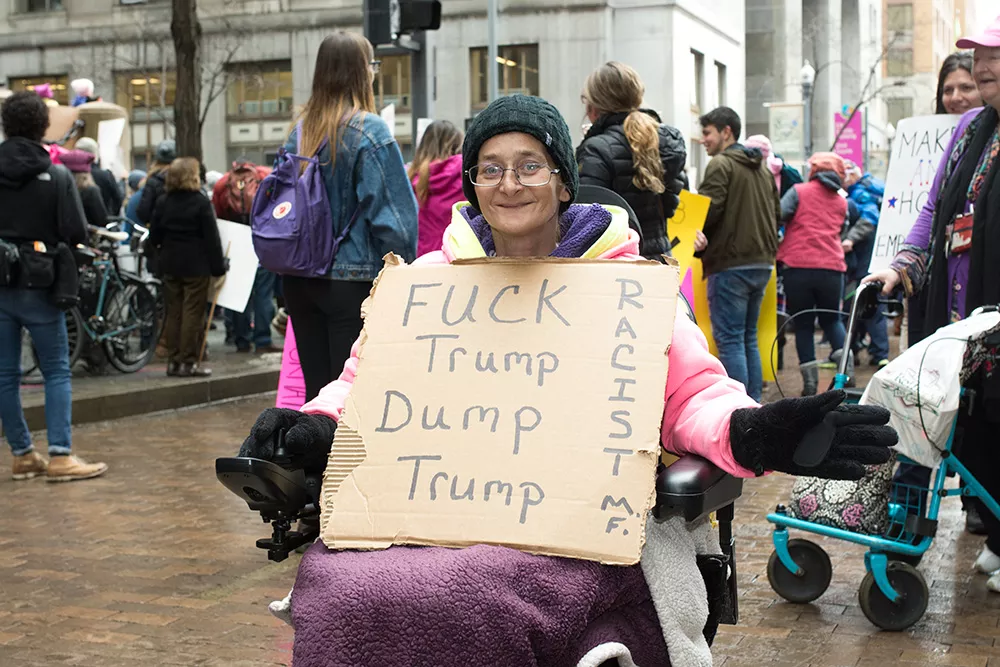 FUCK
Trump
Dump
Trump
RACIST M.F.
MAKE